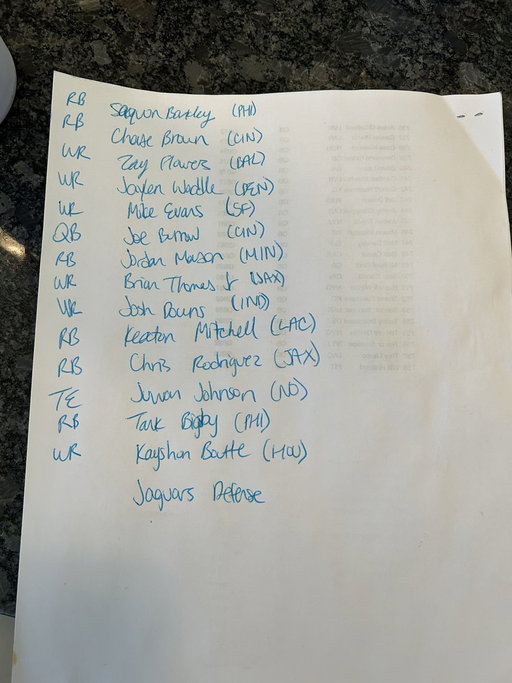 RB Saquon Barkley (PHI)
RB Chase Brown (CIN)
WR Zay Flowers (BAL)
WR Jaylen Waddle (DEN)
WR Mike Evans (SF)
QB Joe Burrow (CIN)
RB Jordan Mason (MIN)
WR Brian Thomas Jr (JAX)
WR Josh Downs (IND)
RB Keaton Mitchell (LAC)
RB Chris Rodriguez (JAX)
TE Juwan Johnson (NO)
RB Tank Bigsby (PHI)
WR Kayshon Boutte (HOU)
Jaguars Defense